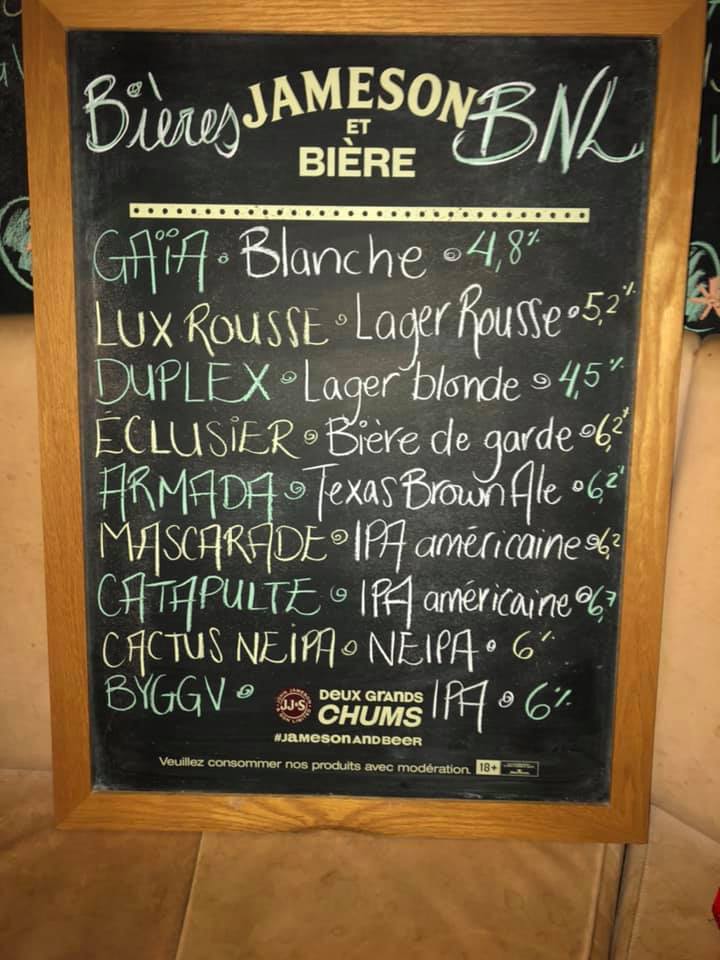 Bières JAMESON BNL
ET
BIÈRE
GAÏA • Blanche • 4,8%
LUX ROUSSE • Lager Rousse • 5,2%
DUPLEX • Lager blonde • 4,5%
ÉCLUSIER • Bière de garde • 6,2%
ARMADA • Texas Brown Ale • 6,2%
MASCARADE • IPA américaine • 6,2
CATAPULTE • IPA américaine • 6,7
CACTUS NEIPA • NEIPA • 6%
BYGGV • IPA • 6%
JJ&S
DEUX GRANDS
CHUMS
#JAMESONANDBEER
Veuillez consommer nos produits avec modération. 18+